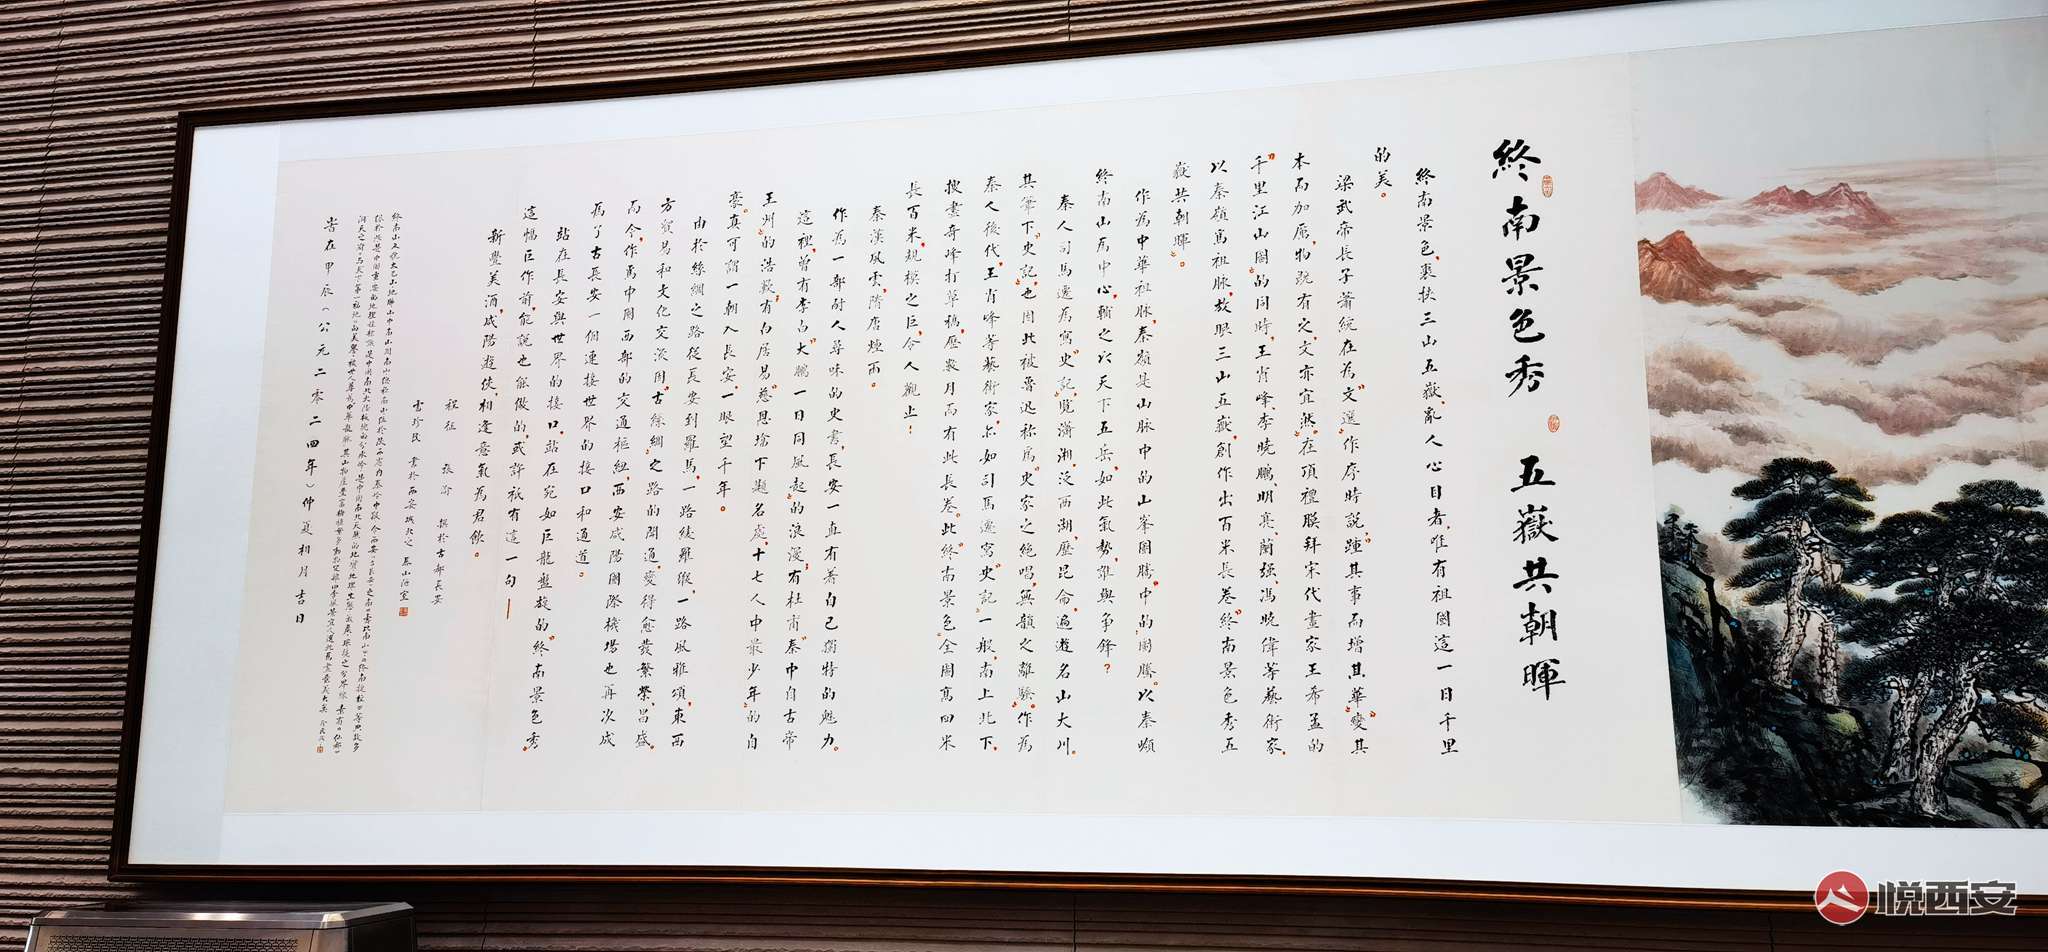 終南景色秀 五嶽共朝暉
終南景色,裹挾三山五嶽,亂人心目者,唯有祖國這一日千里
的美。
梁武帝長子蕭統在為“文選”作序時説,踵其事而增其華,變其
本而加厲,物既有之,文亦宜然。在頂禮膜拜宋代畫家王希孟的
“千里江山圖”的同時,王肖峰、李曉鵬、明亮、蘭强、馮曉偉等藝術家,
以秦嶺為祖脉,放眼三山五嶽,創作出百米長卷“終南景色秀五
嶽共朝暉”。
作為中華祖脉,秦嶺是山脉中的山峯,圖騰中的圖騰。以秦嶺
終南山為中心,輔之以天下五岳,如此氣勢,誰與争鋒?
秦人司馬遷為寫“史記”,覧瀟湘,泛西湖,歷昆侖,遍遊名山大川。
其筆下“史記”,也因此被魯迅称為“史家之絶唱,無韻之離騷”。作為
秦人後代,王肖峰等藝術家,亦如司馬遷寫“史記”一般,南上北下,
搜盡奇峰打草稿,歷數月而有此長卷。此“終南景色全圖”高四米
長百米,規模之巨,令人觀止!
秦漢風雲,隋唐煙雨。
作為一部耐人尋味的史書,長安一直有著自己獨特的魅力。
這裡,曾有李白“大鵬一日同風起”的浪漫,有杜甫“秦中自古帝
王州”的浩歎,有白居易“慈恩塔下題名處,十七人中最少年”的自
豪。真可謂一朝入長安,一眼望千年。
由於絲綢之路從長安到羅馬,一路綾羅緞,一路風雅頌,東西
方貿易和文化交流,因“古絲綢”之路的開通,變得愈發繁榮、昌盛。
而今,作為中國西部的交通樞紐,西安咸陽國際機場也再次成
為了古長安一個連接世界的接口和通道。
站在長安與世界的接口,站在宛如巨龍盤旋的“終南景色秀”
這幅巨作前,能説也能做的,或許祇有這一句——
新豐美酒,咸陽遊俠,相逢意氣為君飲。
程征 張渝 撰於古都長安
雷珍民 書於西安城北之
岩在甲辰(公元二零二四年)仲夏相月吉日
悦西安